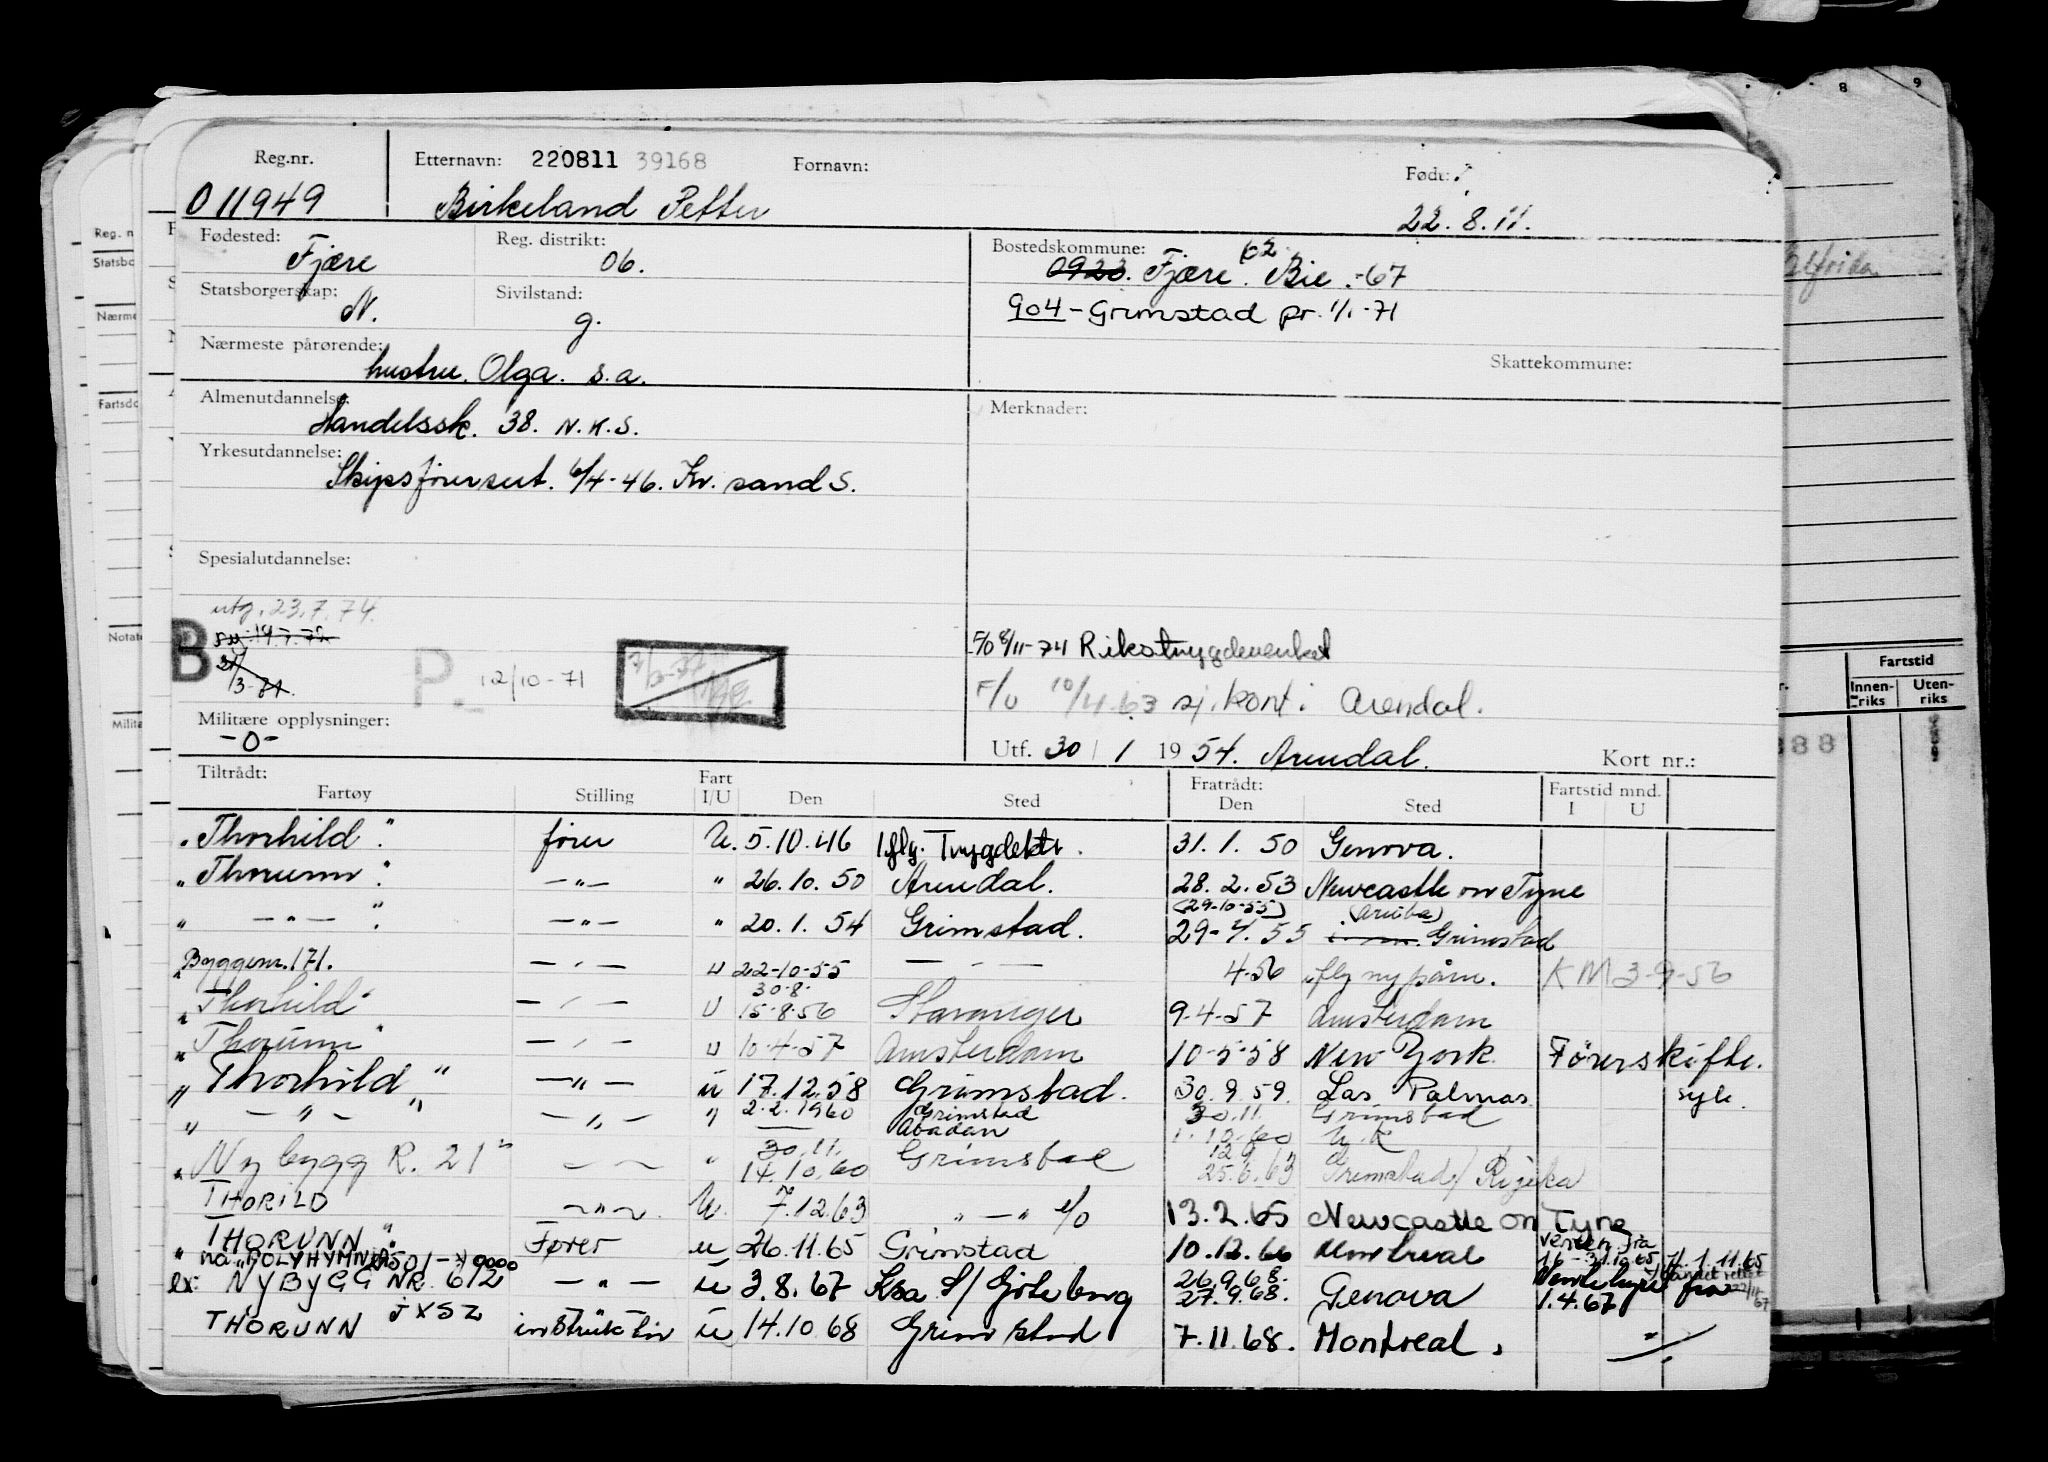 8 9
Reg.nr. Etternavn: 220811 39168 Fornavn: Født:
011949 Birkeland Petter 22.8.11.
Fødested: Fjære Reg. distrikt: 06. Bostedskommune: 0923. Fjære. Bie.-67
Statsborgerskap: N. Sivilstand: g. 904-Grimstad pr. 1/1-71
Nærmeste pårørende: hustru. Olga. s.a. Skattekommune:
Almenutdannelse: Handelssk. 38. N.K.S. Merknader:
Yrkesutdannelse: Skipsførersert. 6/4-46. Kr. sand S.
Spesialutdannelse:
utg. 23.7.74.
B P. 12/10-71
F/O 8/11-74 Rikstrygdeverket
F/U 10/4.63 sj.kont. i Arendal.
Militære opplysninger: -0-
Utf. 30/1 1954. Arendal. Kort nr.:
Tiltrådt: Fartøy Stilling Fart I/U Den Sted Fratrådt: Den Sted Fartstid mnd. I U
"Thorhild". fører U. 5.10.46 iflg. Trygdektr. 31.1.50 Genova.
"Thorunn". -"- " 26.10.50 Arendal. 28.2.53 Newcastle on Tyne
" -"- ". -"- " 20.1.54 Grimstad. (29-10-55) 29-4.55 (Aruba) Grimstad
Byggenr. 171. -"- U 22-10-55 -"- 4-56 iflg ny påm. KM 3-9-56
"Thorhild" -"- U 30.8. 15.8.56 Stavanger 9-4-57 Amsterdam
"Thorunn" -"- U 10-4-57 Amsterdam 10-5-58 New York. Førerskifte.
"Thorhild" -"- U 17.12.58 Grimstad. 30.9.59. Las Palmas syk.
" -"- " -"- " 2.2.1960 Grimstad Abadan 30.11. 1.10.60 Grimstad U.K
"Nybygg R. 21" -"- " 30.11. 14.10.60 Grimstad 12.9 25.6.63 Grimstad/Rijeka
THORILD -"- U. 7.12.63 " -"- F/O 13.2.65 Newcastle on Tyne
"THORUNN" Fører U 26.11.65 Grimstad 10.12.66 Montreal
nå "POLYHYMNIA"
ex: NYBYGG NR. 612 -"- U 3.8.67 Ksa S/Göteborg 26.9.68. 27.9.68. Genova 1.4.67
THORUNN JXSZ instruktør U 14.10.68 Grimstad 7.11.68. Montreal.
Fartstid
Innen-riks Uten-riks